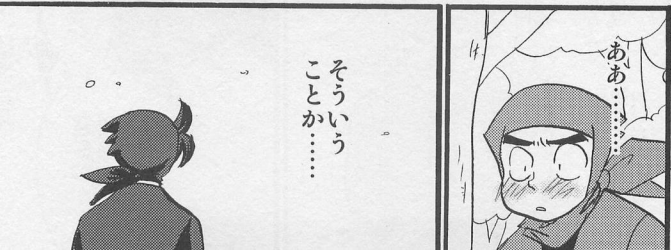 ああ………
そういう
ことか……